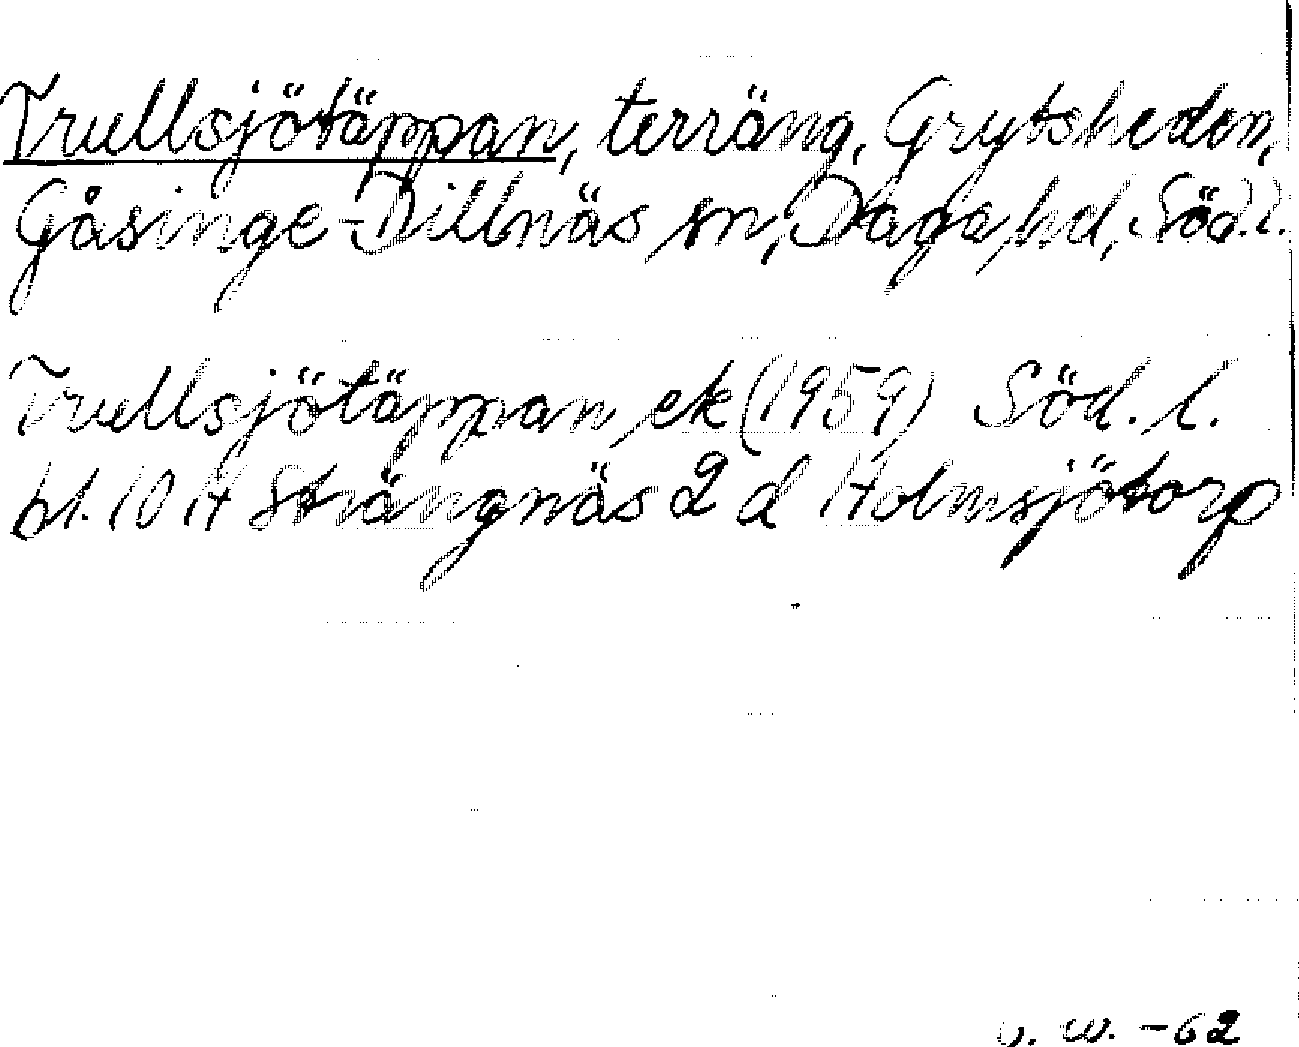 Trullsjötäppan, terräng, Grytsheden,
Gåsinge-Dillnäs sn, Daga hd, Söd.l.
Trullsjötäppan ek (1959) Söd. l.
bl. 10 H Strängnäs 2 d Holmsjötorp
v. w. -62